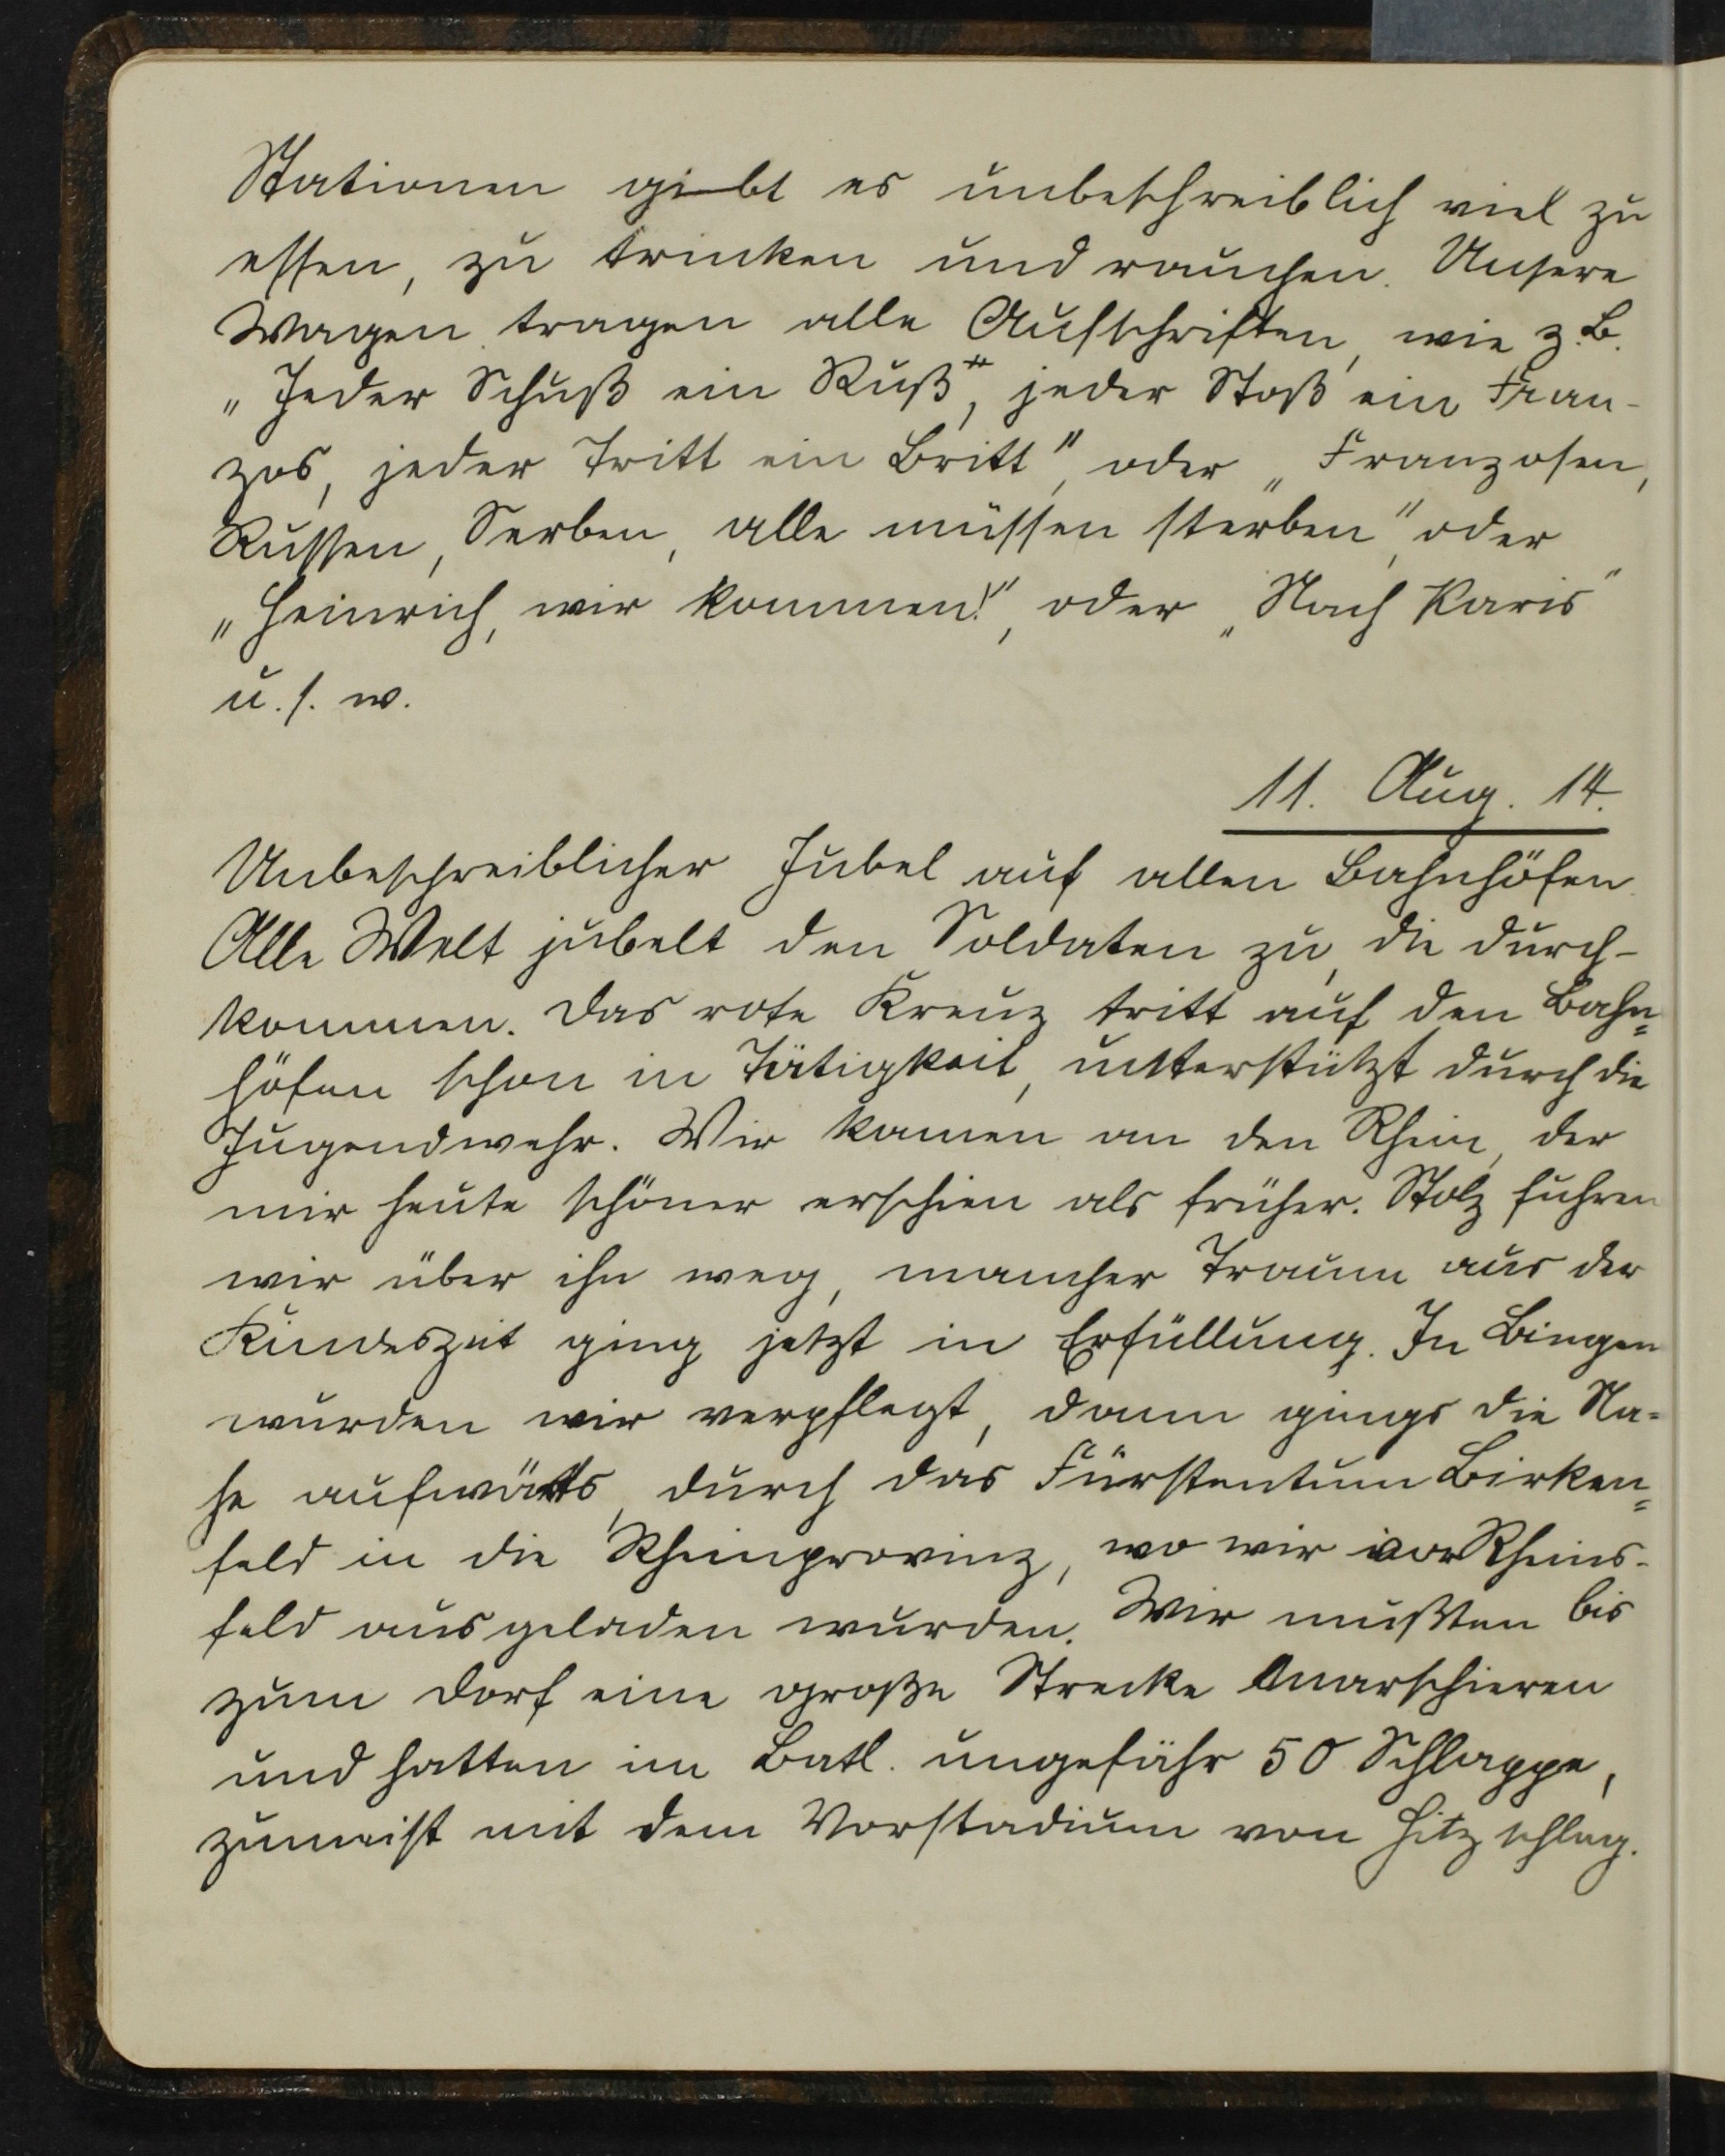 Stationen gibt es unbeschreiblich viel zu
essen, zu trinken und rauchen. Unsere
Wagen tragen alle Aufschriften, wie z. B.
„Jeder Schuß ein Ruß“, jeder Stoß ein Fran-
zos, jeder Tritt ein Britt“, oder „Franzosen,
Russen, Serben, alle müssen sterben“, oder
„Heinrich, wir kommen!“, oder „Nach Paris“
u. s. w.
11. Aug. 14.
Unbeschreiblicher Jubel auf allen Bahnhöfen.
Alle Welt jubelt den Soldaten zu, die durch-
kommen. Das rote Kreuz tritt auf den Bahn=
höfen schon in Tätigkeit, unterstützt durch die
Jugendwehr. Wir kamen an den Rhein, der
mir heute schöner erschien als früher. Stolz fuhren
wir über ihn weg, mancher Traum aus der
Kindeszeit ging jetzt in Erfüllung. In Bingen
wurden wir verpflegt, dann gings die Na=
he aufwärts, durch das Fürstentum Birken=
feld in die Rheinprovinz, wo wir vor Rheins-
feld ausgeladen wurden. Wir mußten bis
zum Dorf eine große Strecke marschieren
und hatten im Batl. ungefähr 50 Schlappe,
zumeist mit dem Vorstadium von Hitzschlag.